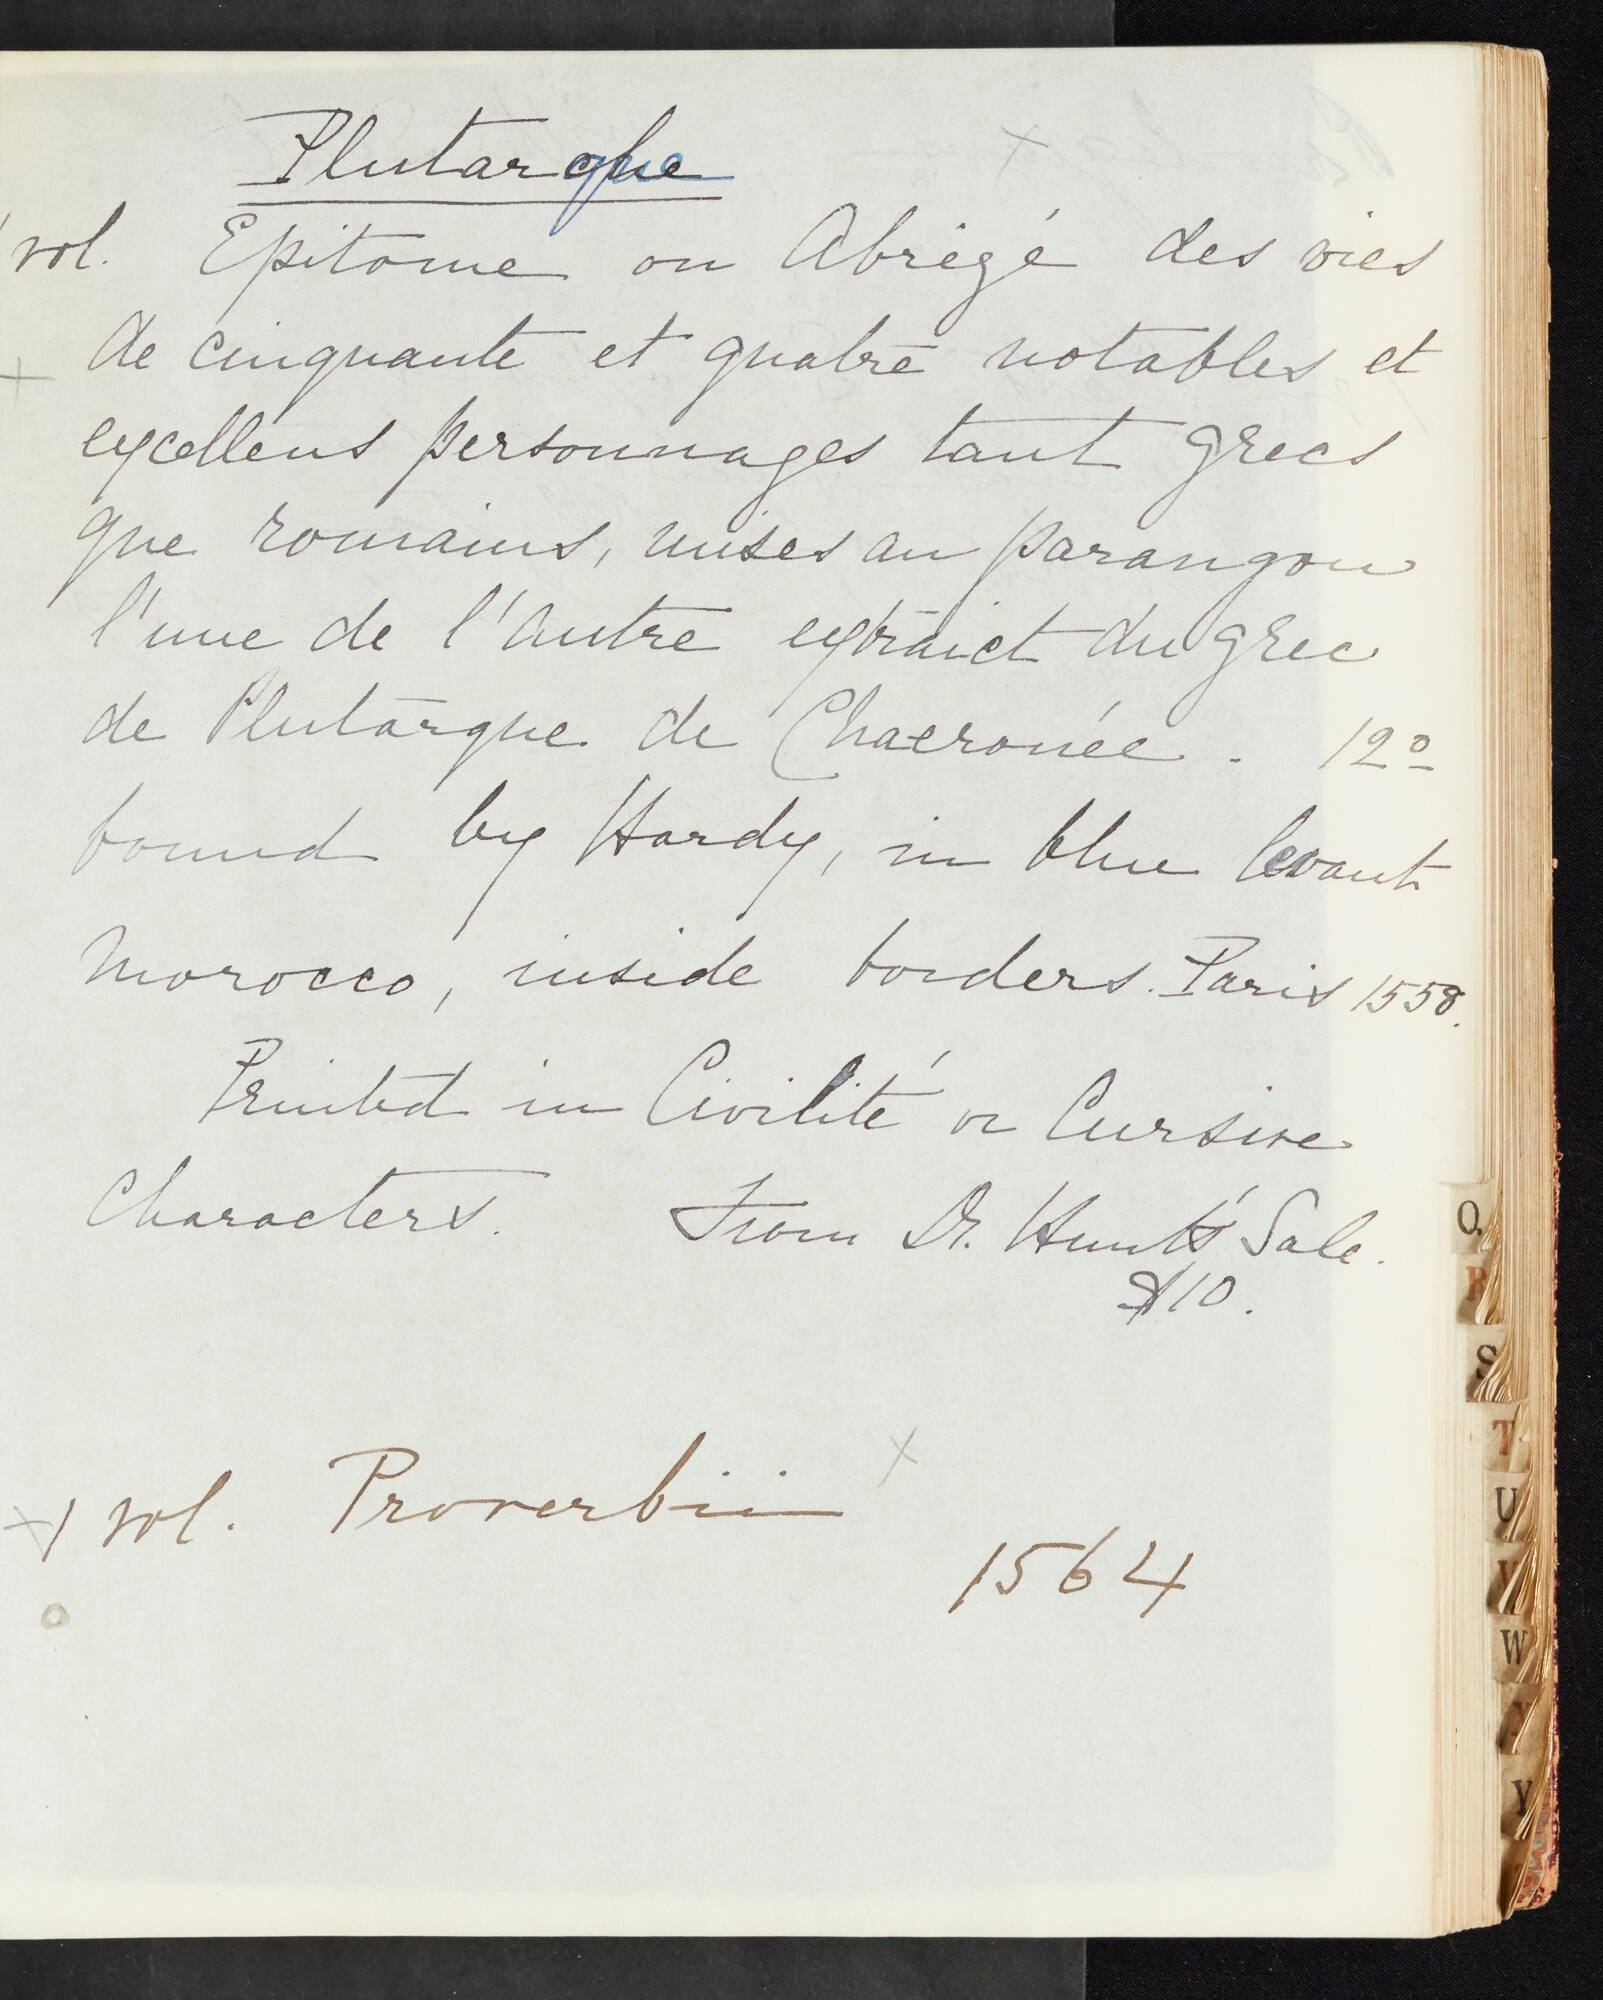 Plutarque
1 vol. Epitome ou Abrégé des vies
de cinquante et quatre notables et
excellens personnages tant grecs
que romains, mises au parangon
l'une de l'autre extraict du grec
de Plutarque de Chaeronée. 12º
bound by Hardy, in blue levant
morocco, inside borders. Paris 1558.
Printed in Civilité or Cursive
Characters. From Dr. Hunt's Sale.
$10.
1 vol. Proverbii
1564
Q
R
S
T
U
V
W
X
Y